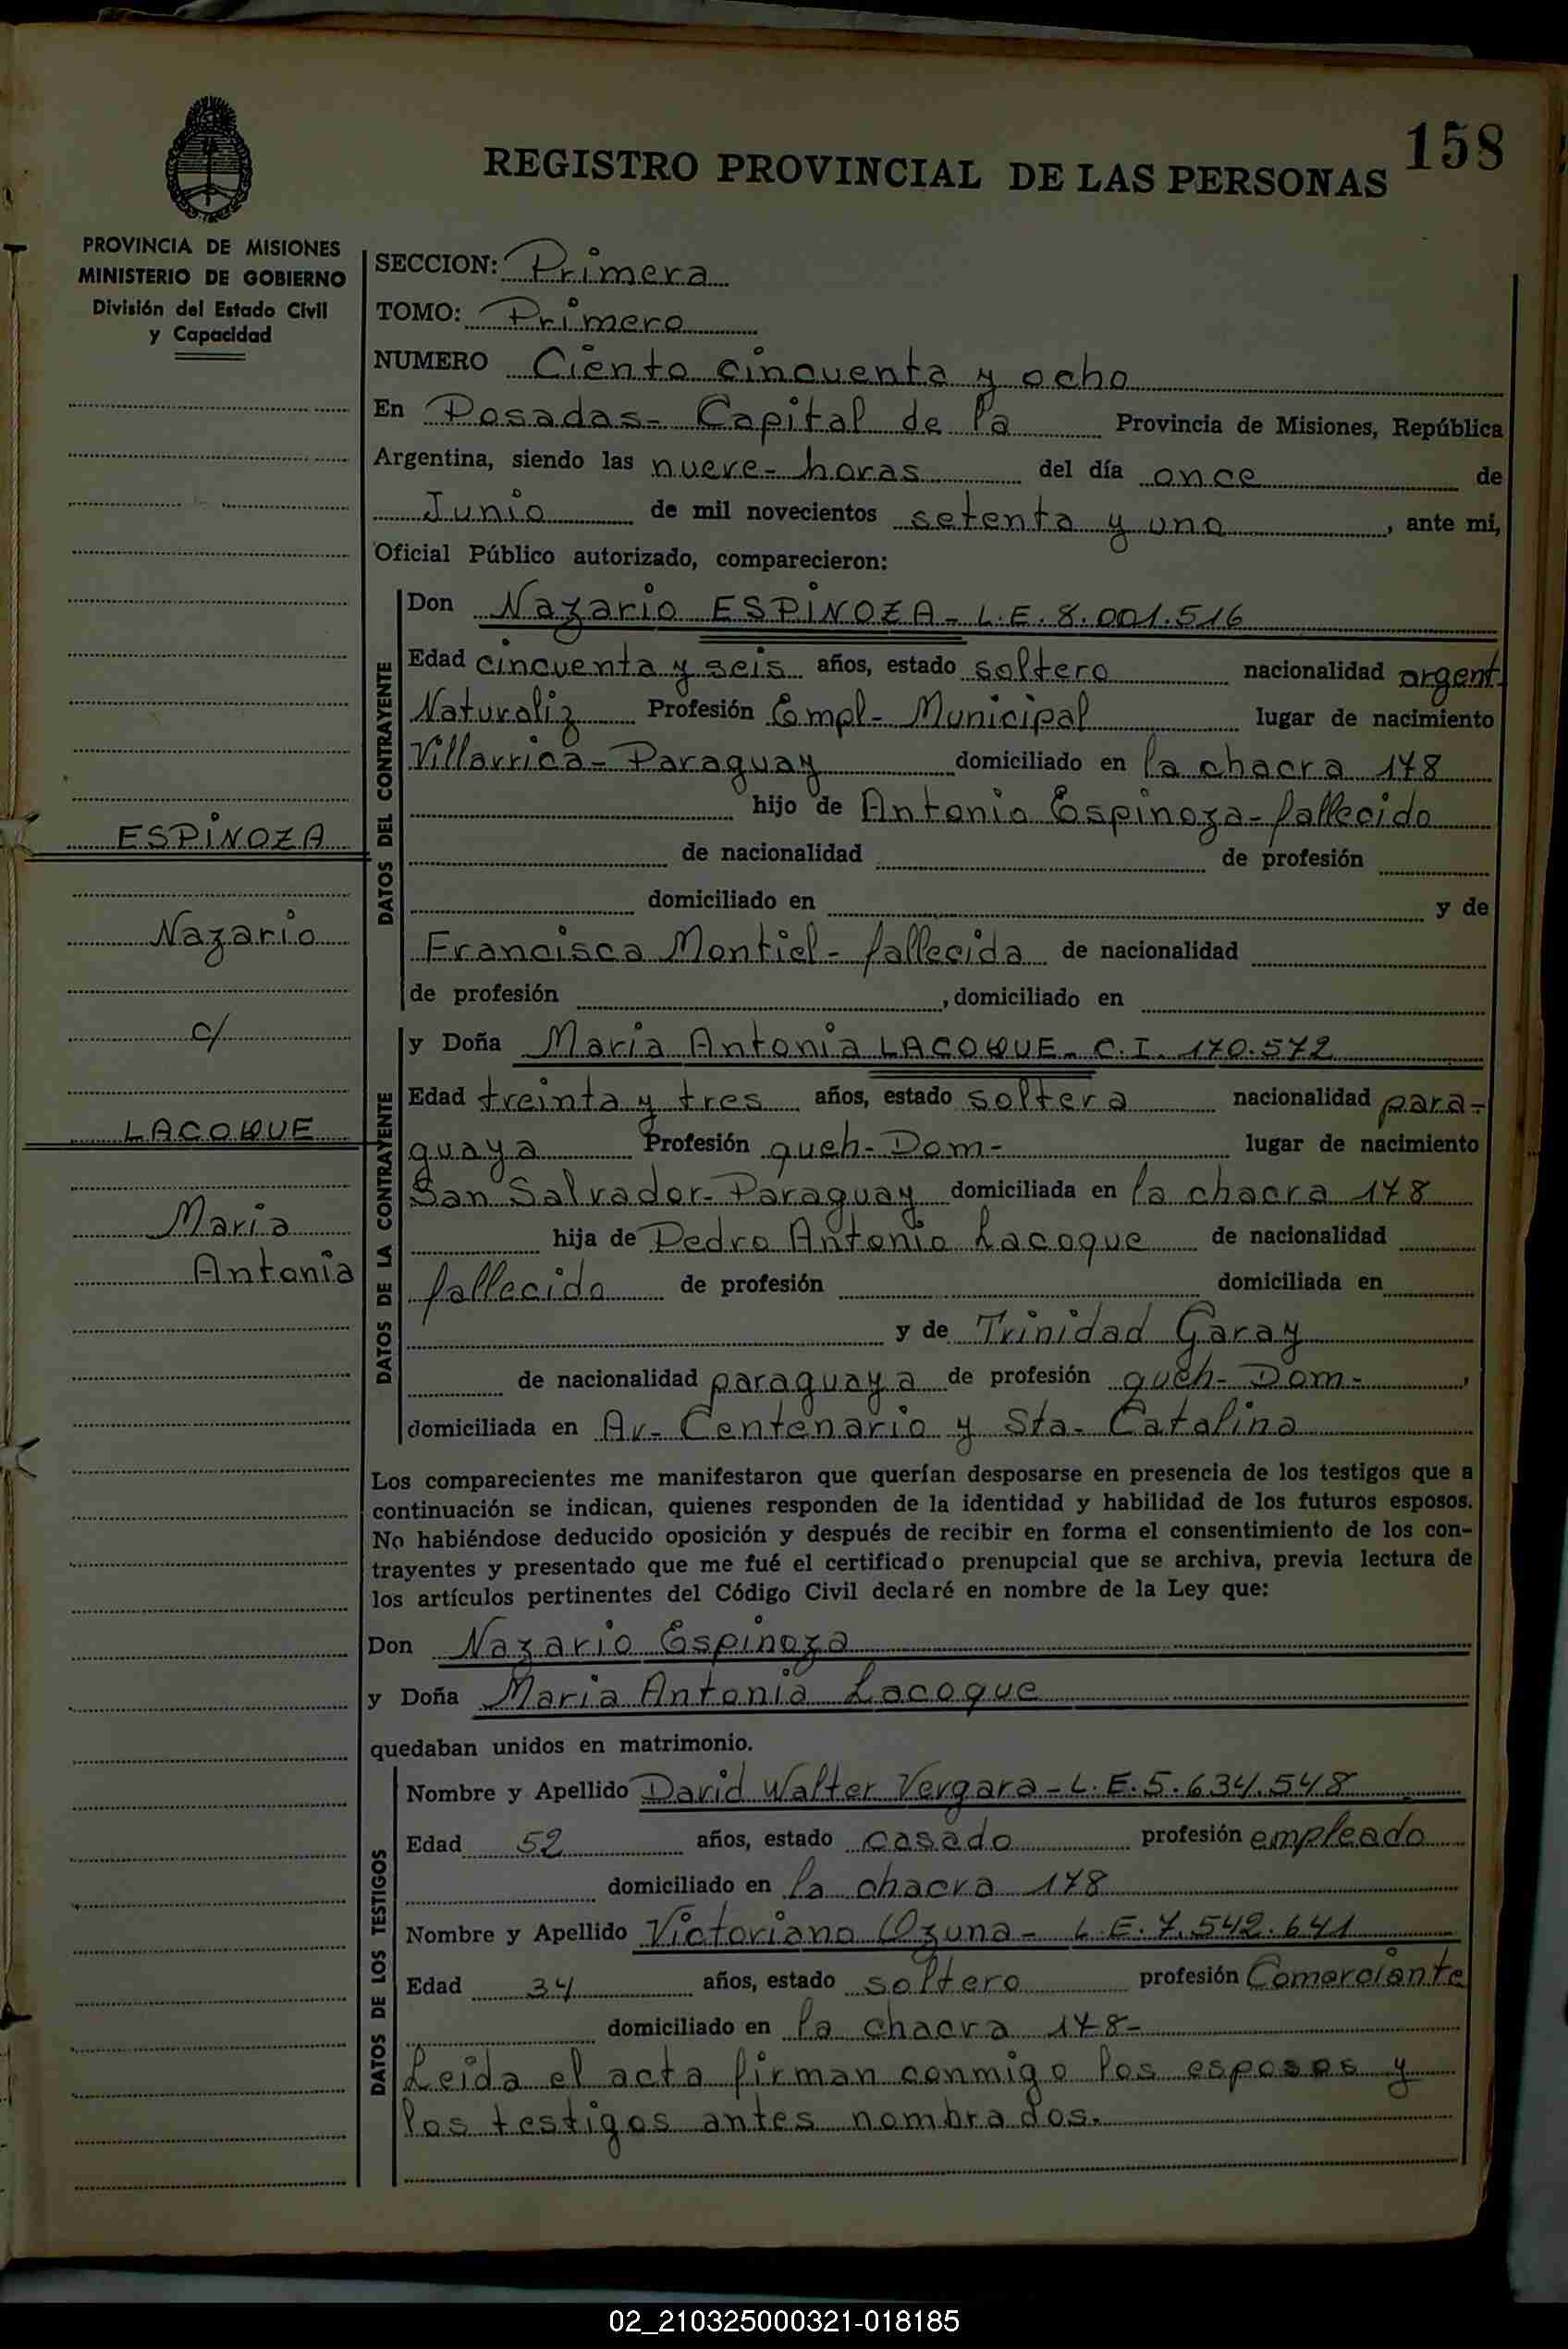 158
REGISTRO PROVINCIAL DE LAS PERSONAS
PROVINCIA DE MISIONES
MINISTERIO DE GOBIERNO
División del Estado Civil
y Capacidad
ESPINOZA
Nazario
c/
LACOQUE
Maria
Antonia
SECCION: Primera
TOMO: Primero
NUMERO Ciento cincuenta y ocho
En Posadas- Capital de la Provincia de Misiones, República
Argentina, siendo las nueve- horas del día once de
Junio de mil novecientos setenta y uno, ante mi,
Oficial Público autorizado, comparecieron:
DATOS DEL CONTRAYENTE
Don Nazario ESPINOZA- L.E. 8.001.516
Edad cincuenta y seis años, estado soltero nacionalidad argent.
Naturaliz Profesión Empl- Municipal lugar de nacimiento
Villarrica- Paraguay domiciliado en la chacra 178
hijo de Antonio Espinoza- fallecido
de nacionalidad de profesión
domiciliado en y de
Francisca Montiel- fallecida de nacionalidad
de profesión , domiciliado en
DATOS DE LA CONTRAYENTE
y Doña Maria Antonia LACOQUE- C.I. 170.572
Edad treinta y tres años, estado soltera nacionalidad para-
guaya Profesión queh- Dom- lugar de nacimiento
San Salvador- Paraguay domiciliada en la chacra 178
hija de Pedro Antonio Lacoque de nacionalidad
fallecido de profesión domiciliada en
y de Trinidad Garay
de nacionalidad paraguaya de profesión queh- Dom- ,
domiciliada en Av- Centenario y Sta- Catalina
Los comparecientes me manifestaron que querían desposarse en presencia de los testigos que a
continuación se indican, quienes responden de la identidad y habilidad de los futuros esposos.
No habiéndose deducido oposición y después de recibir en forma el consentimiento de los con-
trayentes y presentado que me fué el certificado prenupcial que se archiva, previa lectura de
los artículos pertinentes del Código Civil declaré en nombre de la Ley que:
Don Nazario Espinoza
y Doña Maria Antonia Lacoque
quedaban unidos en matrimonio.
DATOS DE LOS TESTIGOS
Nombre y Apellido David Walter Vergara- L.E. 5.634.548
Edad 52 años, estado casado profesión empleado
domiciliado en la chacra 178
Nombre y Apellido Victoriano Ozuna- L.E. 7.542.641
Edad 34 años, estado soltero profesión Comerciante
domiciliado en la chacra 178-
Leida el acta firman conmigo los esposos y
los testigos antes nombrados.
02_210325000321-018185